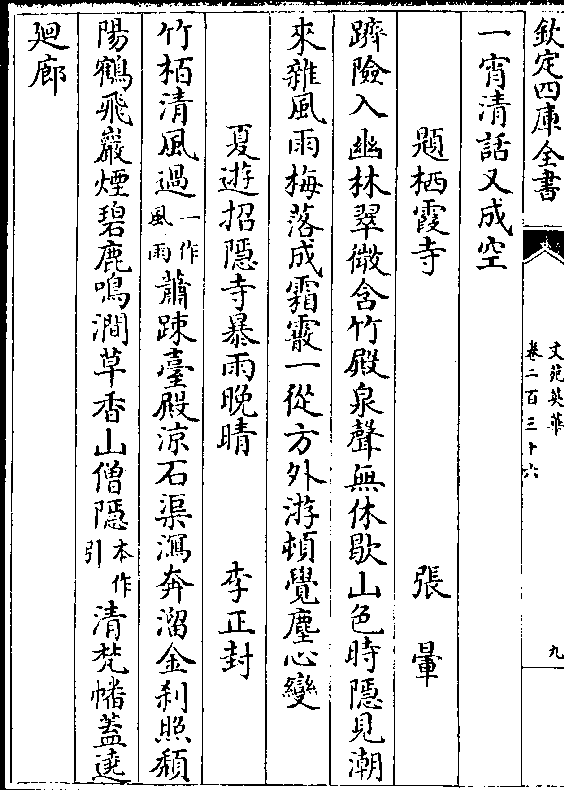 欽定四庫全書
文苑英華
卷二百三十六
九
一宵清話又成空
題栖霞寺 張暈
躋險入幽林翠微含竹殿泉聲無休歇山色時隱見潮
來雜風雨梅落成霜霰一從方外游頓覺塵心變
夏遊招隱寺暴雨晚晴 李正封
竹栢清風過一作風雨蕭踈臺殿涼石渠瀉奔溜金刹照頹
陽鶴飛巖煙碧鹿鳴澗草香山僧隱本作引清梵幡蓋遶
廻廊